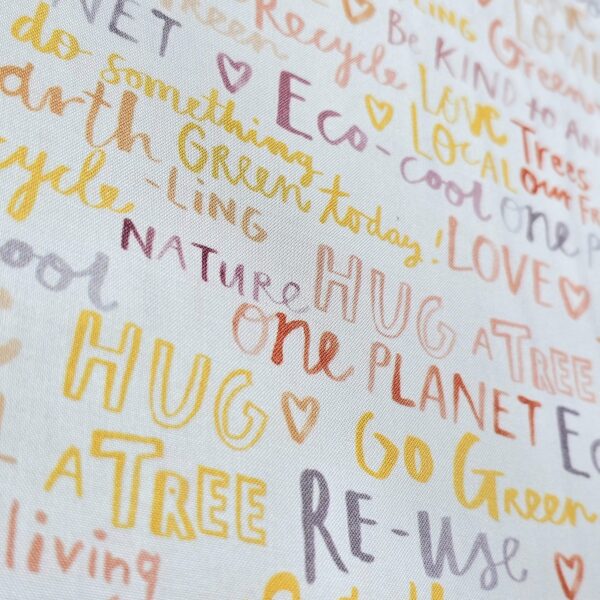 PLANET Green Recycle Be KIND to AN -LiNG Green LOCAL
do something ♡ Eco-cool ♡ LOVE LOCAL Trees Our FR
arth GReeN today! one P
cycle -LiNG LOVE ♡
cool NATURe HUG A TREE
one PLANET Ec
HUG ♡ Go Green
A TREE RE-USe ♡
living